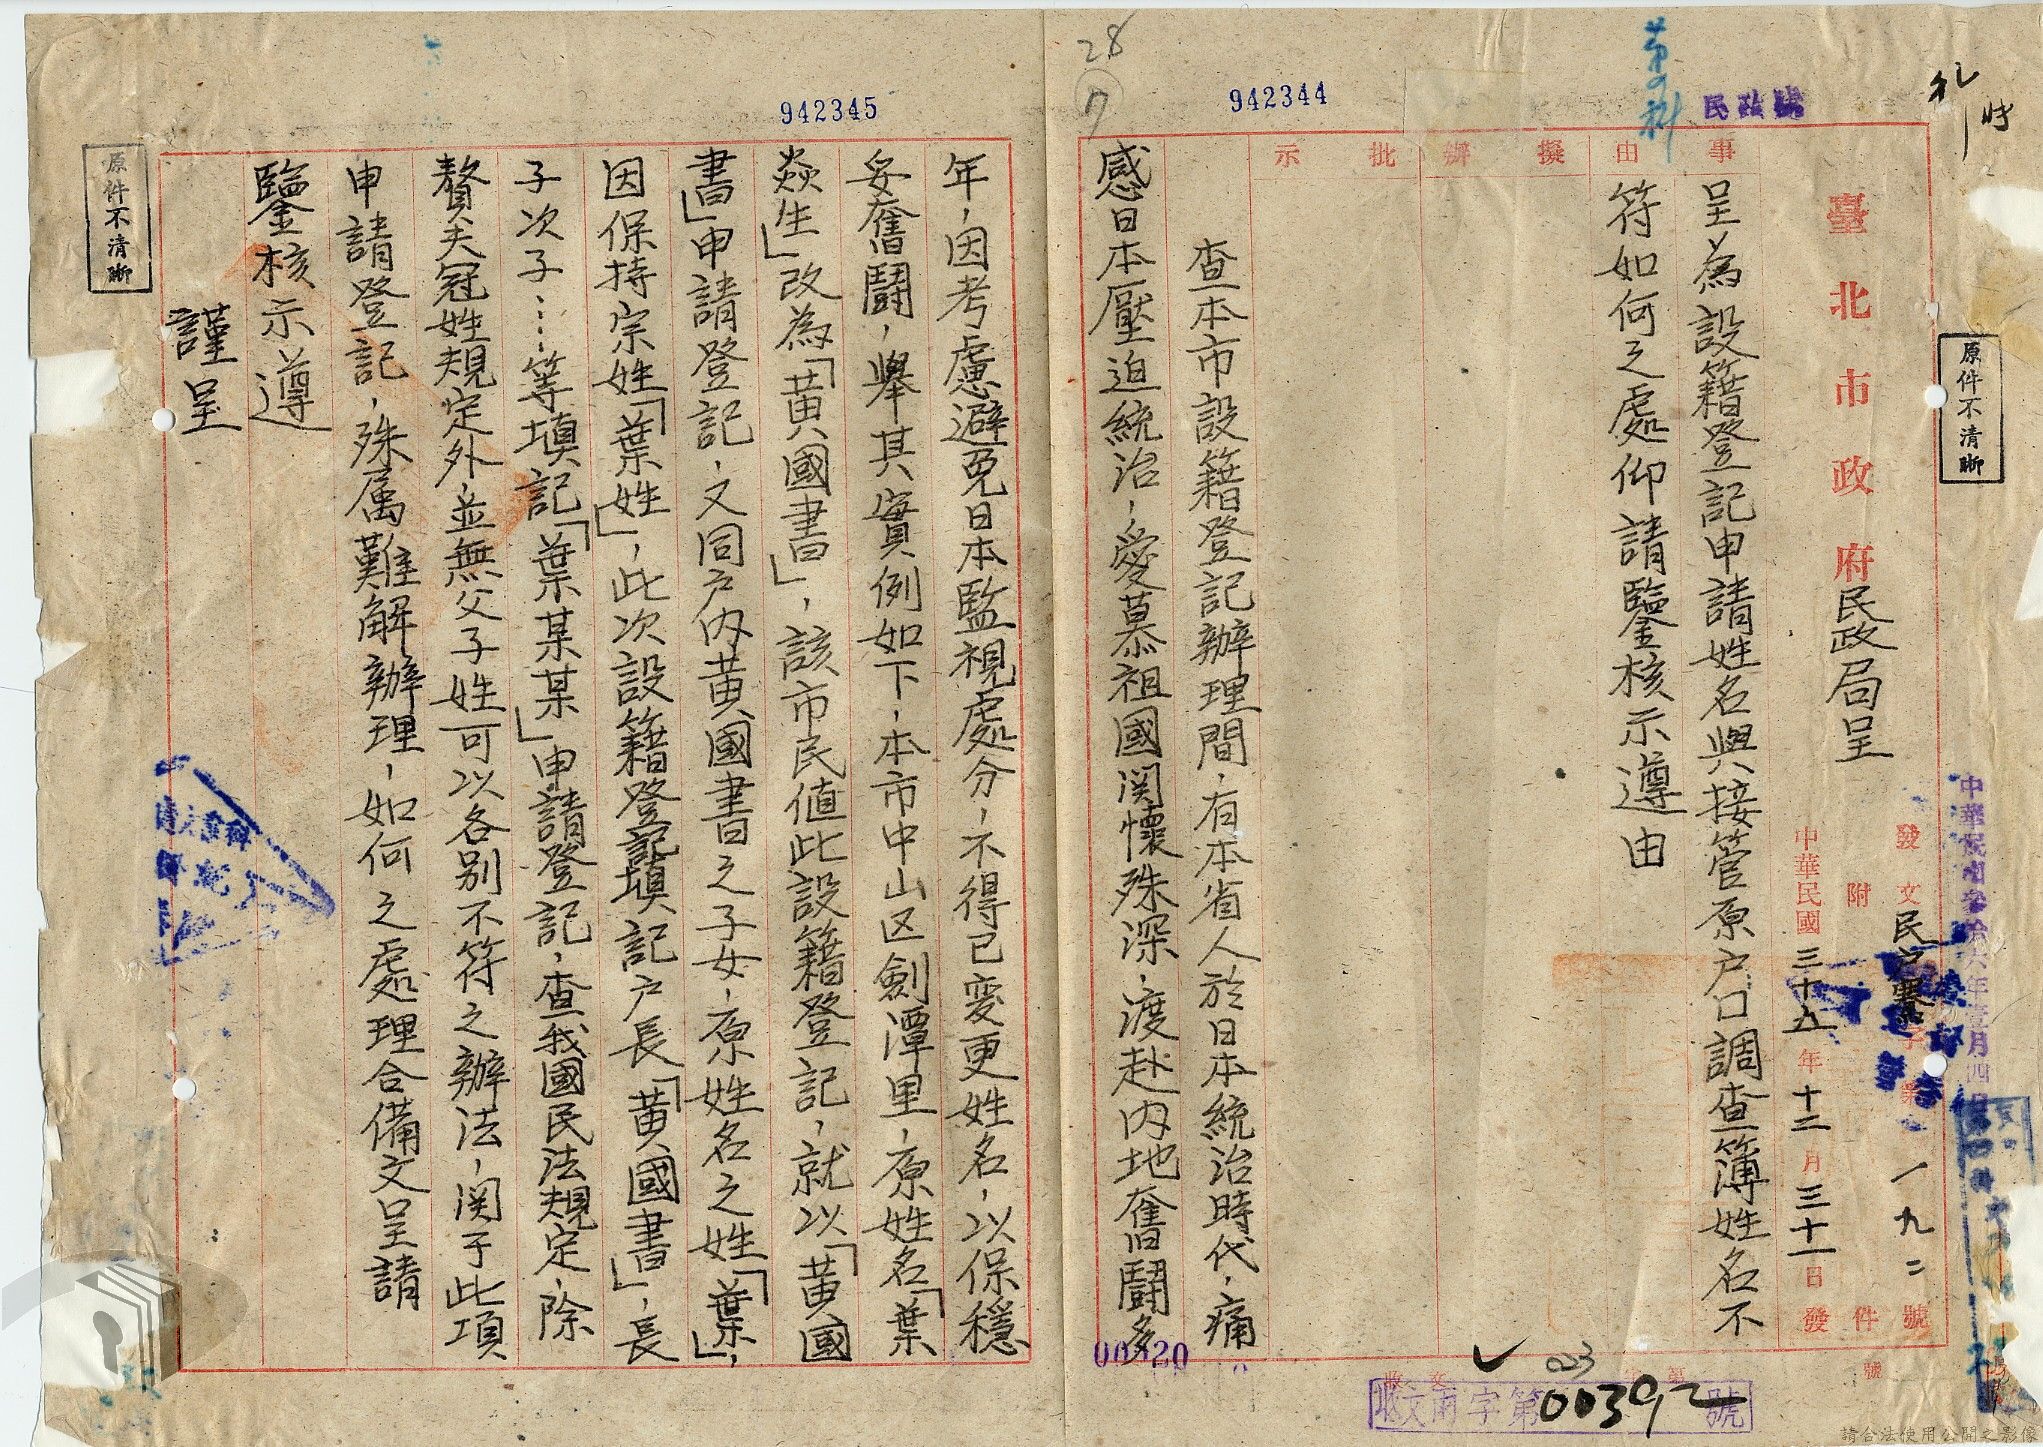 942344
942345
28
7
第四科
民政號
原件不清晰
臺北市政府民政局呈
發文民戶署字第一九二號
附件
中華民國三十五年十二月三十一日發
事由
擬辦
批示
呈為設籍登記申請姓名與接管原戶口調查簿姓名不
符如何之處仰請鑒核示遵由
查本市設籍登記辦理間,有本省人於日本統治時代,痛
感日本壓迫統治,愛慕祖國関懷殊深,渡赴內地奮鬪多
年,因考慮避免日本監視處分,不得已變更姓名,以保穩
妥奮鬪,舉其實例如下,本市中山区劍潭里,原姓名「葉
焱生」改為「黃國書」,該市民值此設籍登記,就以「黃國
書」申請登記,又同戶內黃國書之子女,原姓名之姓「葉」,
因保持宗姓「葉姓」,此次設籍登記填記戶長「黃國書」,長
子次子…等填記「葉某某」申請登記,查我國民法規定,除
贅夫冠姓規定外,並無父子姓可以各別不符之辦法,関于此項
申請登記,殊属難解辦理,如何之處理合備文呈請
鑒核示遵
謹呈
原件不清晰
中華民國參拾六年壹月四日
00320
收文
第
號
023
收文甫字第00392號
請合法使用公開之影像